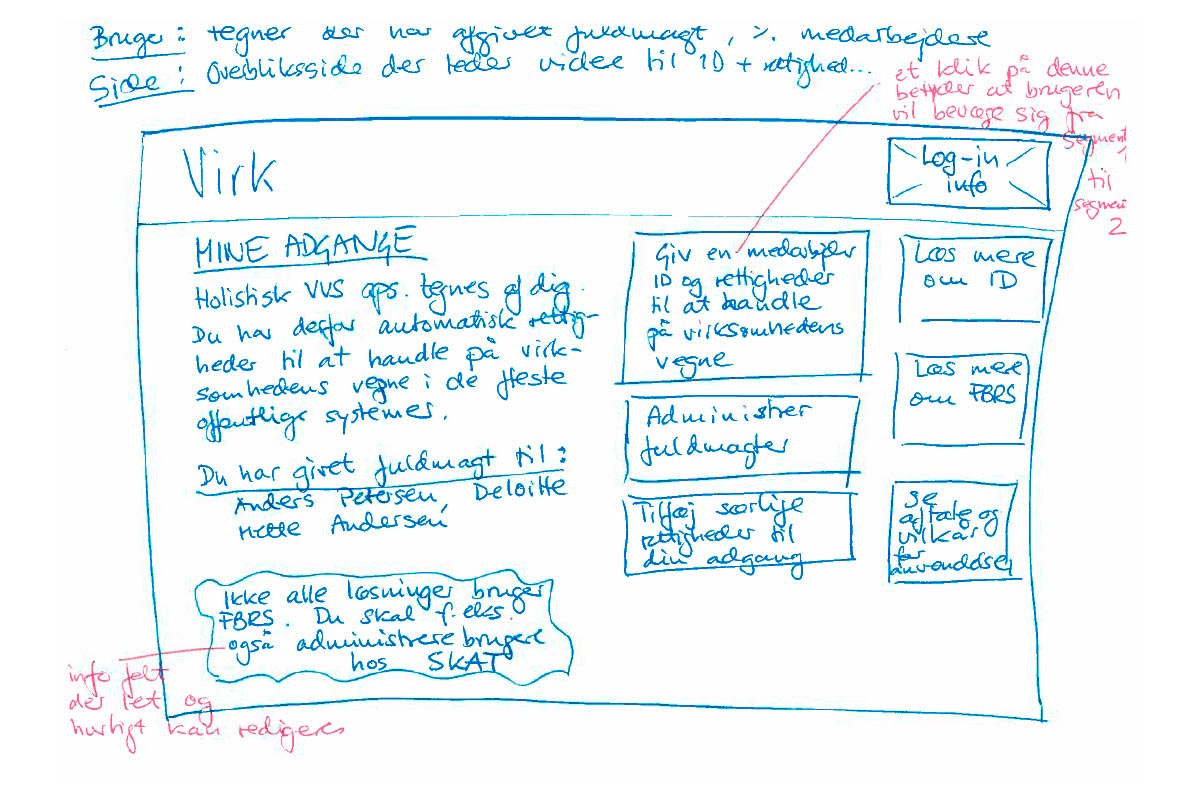 Bruger: tegner der har afgivet fuldmagt, %. medarbejdere
Side: Overbliksside der leder videre til ID + rettighed...
et klik på denne
betyder at brugeren
vil bevæge sig fra
segment
1
til
segment
2
Virk
Log-in
info
MINE ADGANGE
Holistisk VVS aps. tegnes af dig.
Du har derfor automatisk rettig-
heder til at handle på virk-
somhedens vegne i de fleste
offentlige systemer.
Du har givet fuldmagt til:
Anders Petersen, Deloitte
Mette Andersen
Ikke alle løsninger bruger
FBRS. Du skal f.eks.
også administrere brugere
hos SKAT
info felt
der let og
hurtigt kan redigeres
Giv en medarbejder
ID og rettigheder
til at handle
på virksomhedens
vegne
Administrer
fuldmagter
Tilføj særlige
rettigheder til
din adgang
Læs mere
om ID
Læs mere
om FBRS
Se
aftale og
vilkår
for
anvendelse